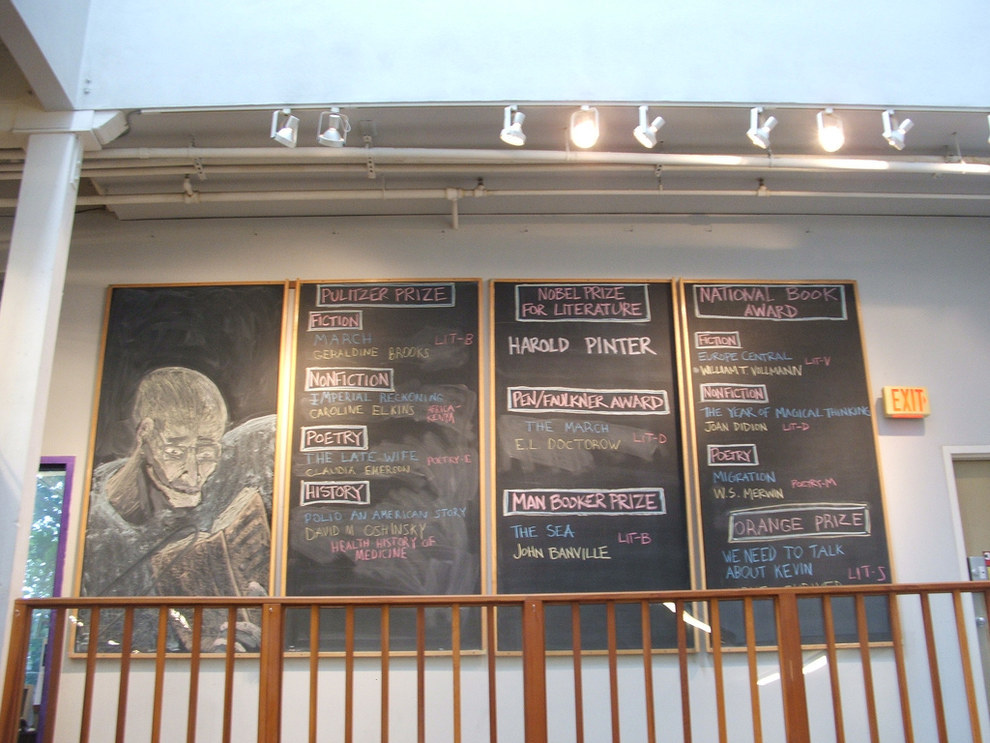 PULITZER PRIZE
FICTION
MARCH LIT-B
GERALDINE BROOKS
NONFICTION
IMPERIAL RECKONING
CAROLINE ELKINS AFRICA-
KENYA
POETRY
THE LATE WIFE POETRY-E
CLAUDIA EMERSON
HISTORY
POLIO AN AMERICAN STORY
DAVID M. OSHINSKY
HEALTH HISTORY OF
MEDICINE
NOBEL PRIZE
FOR LITERATURE
HAROLD PINTER
PEN/FAULKNER AWARD
THE MARCH
E.L. DOCTOROW LIT-D
MAN BOOKER PRIZE
THE SEA LIT-B
JOHN BANVILLE
NATIONAL BOOK
AWARD
FICTION
EUROPE CENTRAL LIT-V
WILLIAM T. VOLLMANN
NONFICTION
THE YEAR OF MAGICAL THINKING
JOAN DIDION LIT-D
POETRY
MIGRATION POETRY-M
W.S. MERWIN
ORANGE PRIZE
WE NEED TO TALK
ABOUT KEVIN LIT-S
EXIT